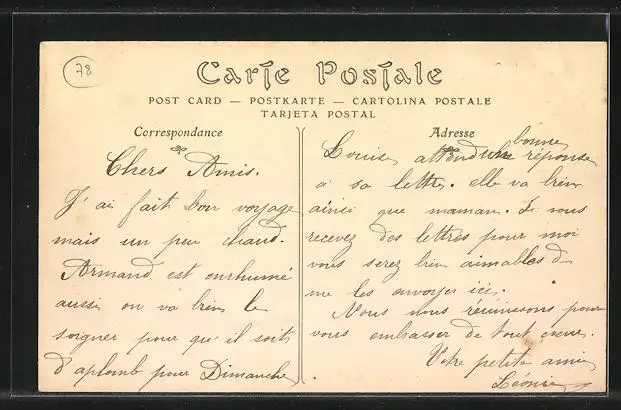 78
Carte Postale
POST CARD — POSTKARTE — CARTOLINA POSTALE
TARJETA POSTAL
Correspondance
Chers Amis.
J'ai fait bon voyage
mais un peu chaud.
Armand est enrhumé
aussi on va bien le
soigner pour qu'il soit
d'aplomb pour Dimanche
Adresse
Louise attend une bonne réponse
a sa lettre. elle va bien
ainsi que maman. Si vous
recevez des lettres pour moi
vous serez bien aimables d
me les envoyer ici.
Nous nous réunissons pour
vous embrasser de tout cœur.
Votre petite amie
Léonie